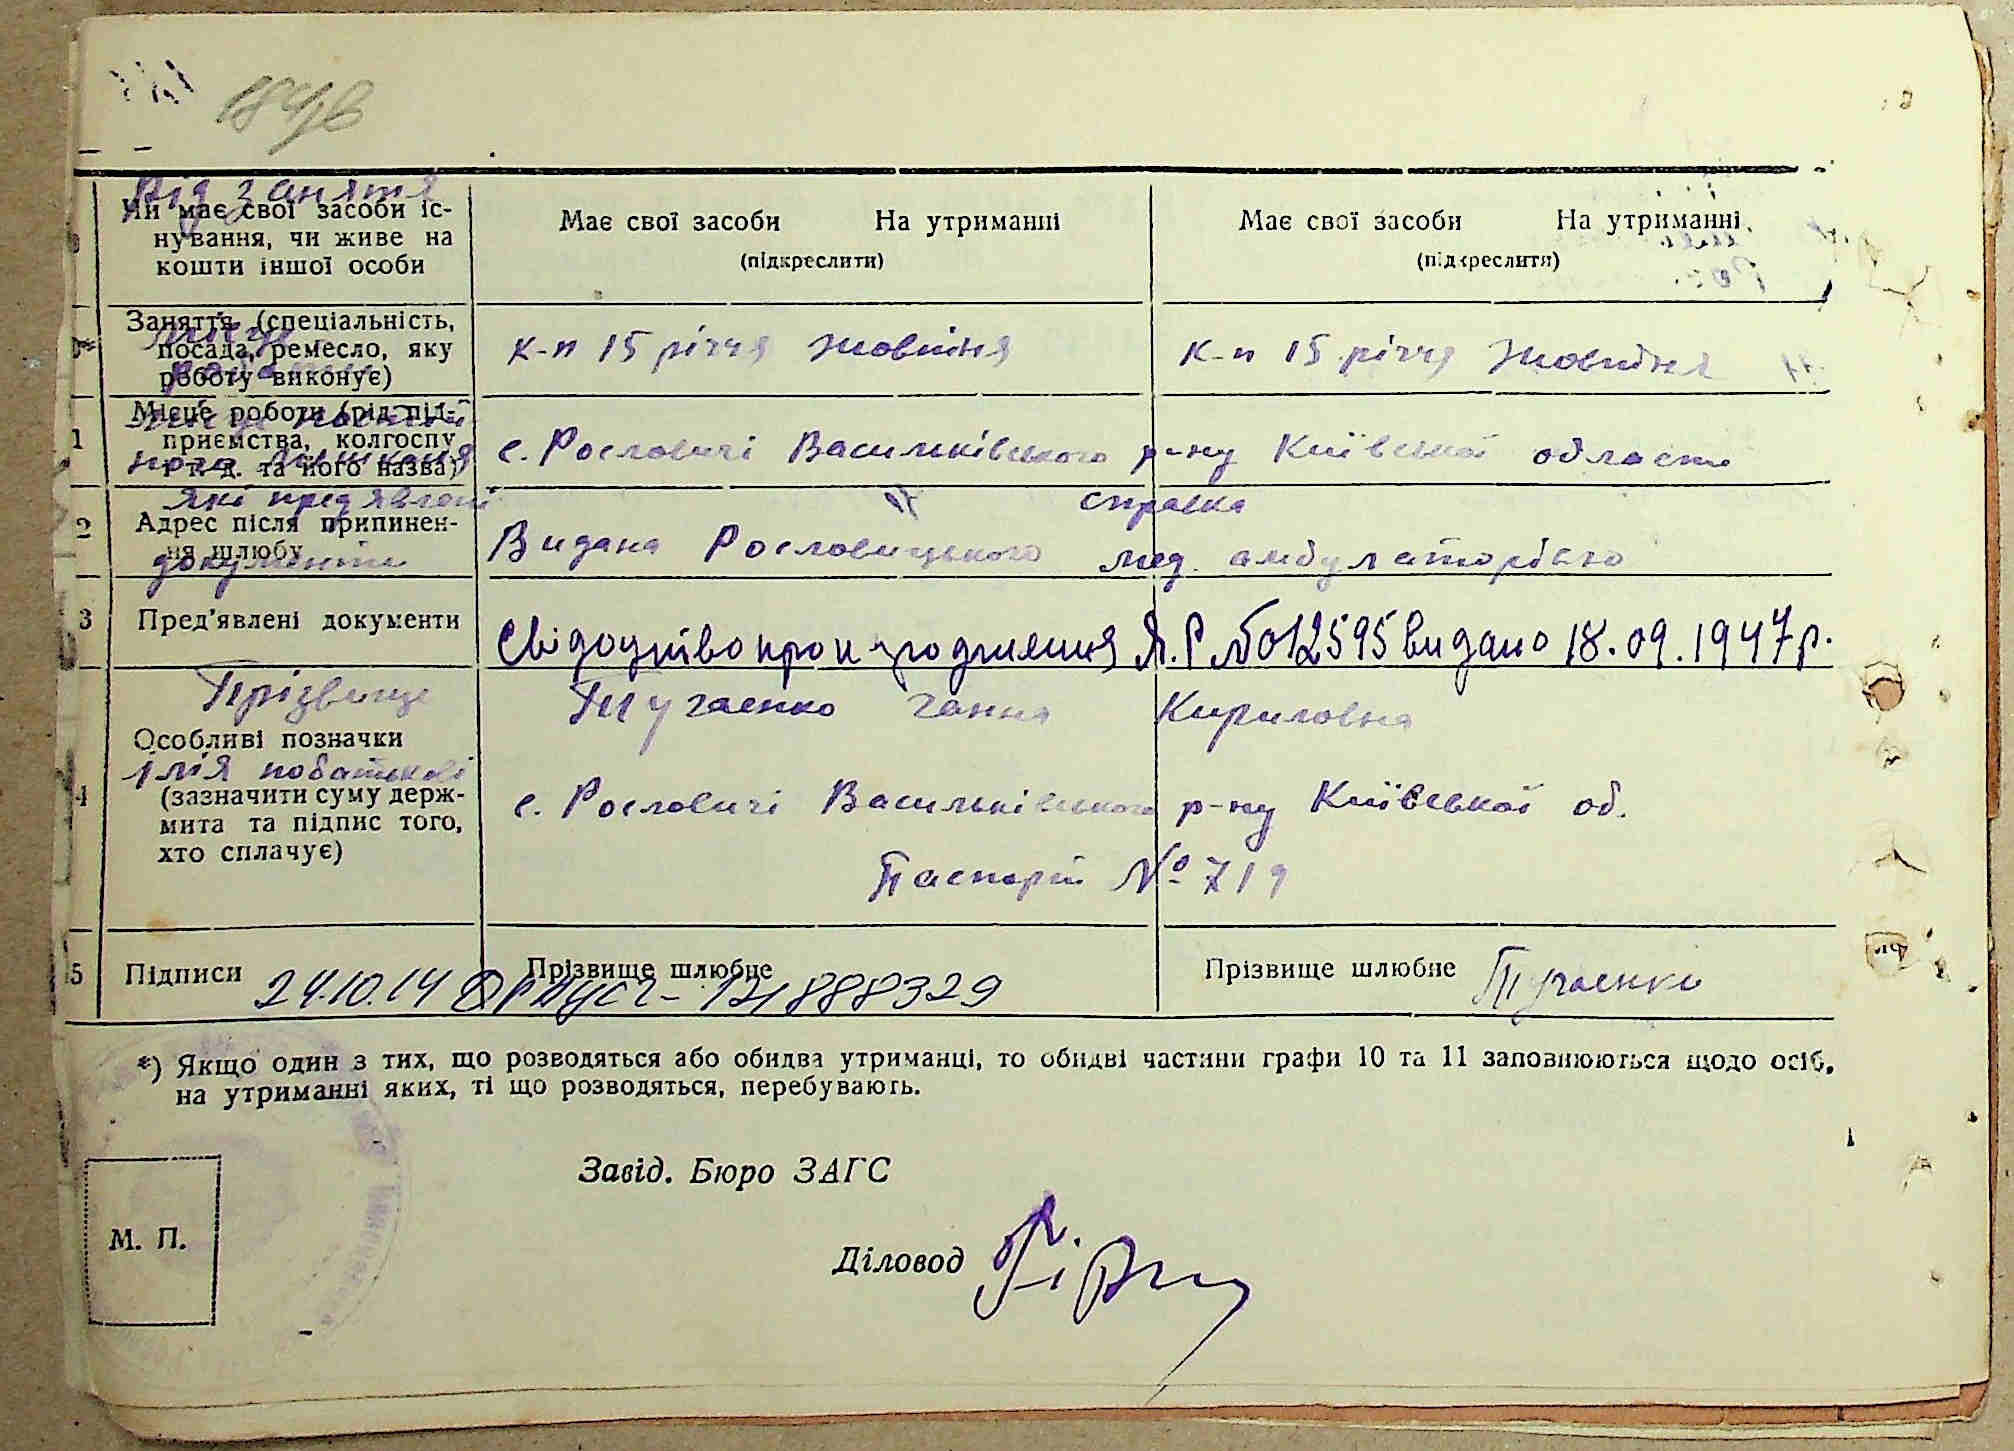 184/в
Рід заняття
Чи має свої засоби іс-
нування, чи живе на
кошти іншої особи
Має свої засоби На утриманні
(підкреслити)
Має свої засоби На утриманні
(підкреслити)
Заняття (спеціальність,
посада, ремесло, яку
роботу виконує)
місце
роботи
к-п 15 річчя Жовтня
к-п 15 річчя Жовтня
1
Місце роботи (рід під-
приємства, колгоспу
і т. д. та його назва)
місце постій
ного
с. Рословичі Васильківського р-ну Київської области
2
які предявлені
Адрес після припинен-
ня шлюбу
документи
справка
Видана Рословицького мед. амбулаторією
3
Пред'явлені документи
Свідоцтво про народження Я.Р №012595 видано 18.09.1947 р.
4
Прізвище
Особливі позначки
імія побатькові
(зазначити суму держ-
мита та підпис того,
хто сплачує)
Тугаенко Ганна Кириловна
с. Рословичі Васильківського р-ну Київської об.
Паспорт № 719
5
Підписи
24.10.14
Прізвище шлюбне
888329
Прізвище шлюбне Тугаенко
*) Якщо один з тих, що розводяться або обидва утриманці, то обидві частини графи 10 та 11 заповнюються щодо осіб,
на утриманні яких, ті що розводяться, перебувають.
Завід. Бюро ЗАГС
М. П.
Діловод